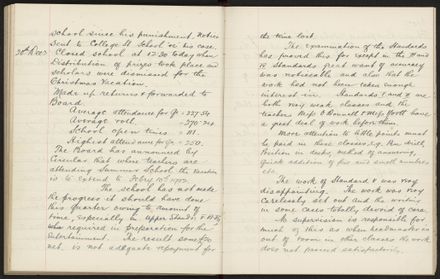 school since his punishment. Notice
sent to College St School re his case.
20th Dec 1907 Closed school at 12.30 today when
Distribution of prizes took place and
scholars were dismissed for the
Christmas Vacation.
Made up returns & forwarded to
Board
Average attendance for Qr = 227.54
Average roll = 270
School open times = 111
Highest attendance for Qr = 252
The Board has announced by
Circular that when teachers are
attending Summer School the vacation
is to extend to Feby 10th 1908.
The school has not made
the progress it should have done
this quarter owing to amount of
time, especially in upper Stands.
required in preparation for the
Entertainment. The result
not, is not adequate repayment for
the time lost.
The examination of the Standards
has proved this for except in the II and
Standards great want of accuracy
was noticeable and also that the
work had not been taken enough
interest in. Standards I and are
both very weak classes and the
teachers Miss & Miss have
a great deal of work before them.
More attention to little points must
be paid in these classes e.g. Hair drill,
Position in desks, method of answering,
Quick addition of small numbers
etc.
The work of Standard V was very
disappointing. The work was very
carelessly set out and the writing
in some cases totally devoid of care.
supervision is responsible for
much of this as when headmaster is
out of room in other classes the work
does not proceed satisfactorily.